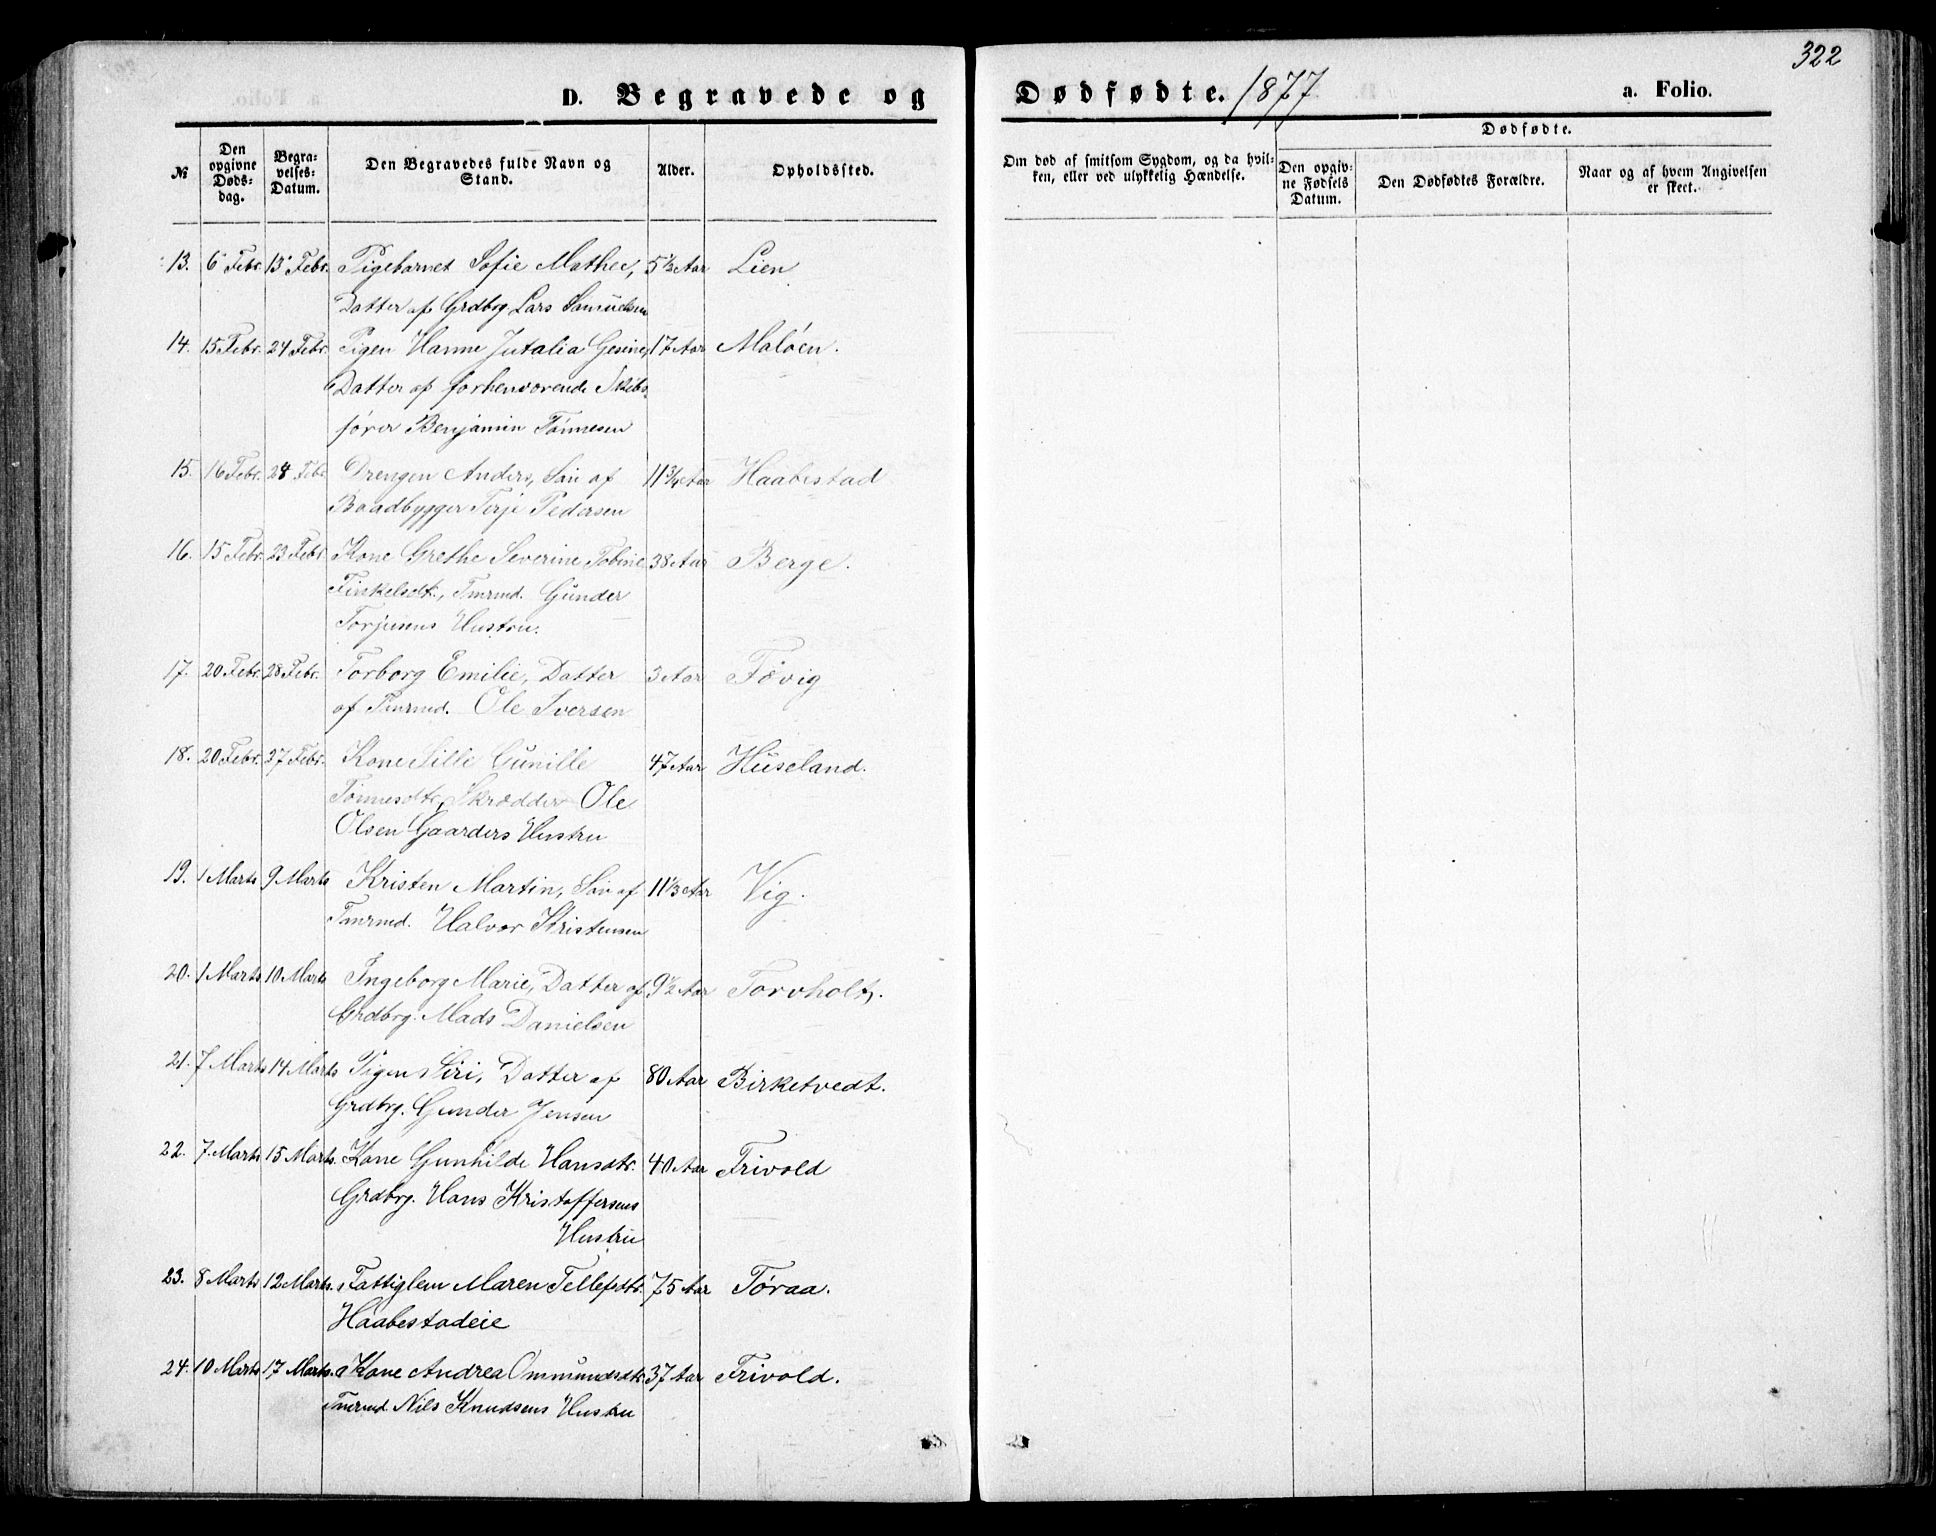 322
D. Begravede og Dødfødte. 1877 a. Folio.
№ Den opgivne Døds-dag. Begra-velses-Datum. Den Begravedes fulde Navn og Stand. Alder. Opholdssted. Om død af smitsom Sygdom, og da hvil-ken, eller ved ulykkelig Hændelse. Dødfødte. Den opgiv-ne Fødsels Datum. Den Dødfødtes Forældre. Naar og af hvem Angivelsen er skeet.
13. 6 Febr. 13 Febr. Pigebarnet Sofie Mathee, 5½ Aar Lien
Datter af Grdbrg Lars Samuelsen
14. 15 Febr. 24 Febr. Pigen Hanne Jutalia Gesine, 17 Aar Maløen.
Datter af forhenværende Skibs-
fører Benjamin Tønnesen
15. 16 Febr. 28 Febr Drengen Anders, Søn af 11¾ Aar Haabestad
Baadbygger Terje Pedersen
16. 15 Febr. 23 Febr. Kone Grethe Severine Tobine 38 Aar Berge.
Finkelsdtr., Tmrmd. Gunder
Torjusens Hustru.
17. 20 Febr. 28 Febr. Torborg Emilie, Datter 3 Aar Fævig
af Tmrmd. Ole Iversen
18. 20 Febr. 27 Febr. Kone Sille Gunille 47 Aar Huseland.
Tønnesdtr, Skrædder Ole
Olsen Gaarders Hustru
19. 1 Marts 9 Marts Kristen Martin, Søn af 11⅓ Aar Vig.
Tmrmd. Halvor Kristensen
20. 1 Marts 10 Marts Ingeborg Marie, Datter af 9½ Aar Torvholt.
Grdbrg. Mads Danielsen
21. 7 Marts 14 Marts Pigen Siri, Datter af 80 Aar Birketvedt.
Grdbrg. Gunder Jensen
22. 7. Marts 15 Marts. Kone Gunhilde Hansdtr. 40 Aar Frivold
Grdbrg. Hans Kristoffersens
Hustru
23. 8 Marts 12 Marts. Fattiglem Maren Tellefsdtr. 75 Aar Tøraa.
Haabestadeie
24. 10 Marts 17 Marts. Kone Andrea Ommundsdtr. 37 Aar Frivold.
Tmrmd. Nils Knudsens Hustru